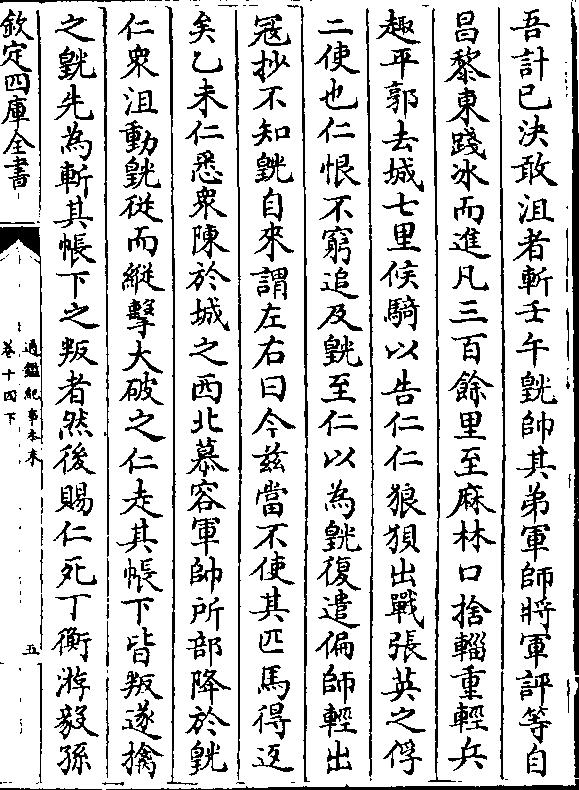 吾計已決敢沮者斬壬午皝帥其弟軍師將軍評等自
昌黎東踐冰而進凡三百餘里至麻林口捨輜重輕兵
趣平郭去城七里侯騎以告仁仁狼狽出戰張英之俘
二使也仁恨不窮追及皝至仁以為皝復遣偏師輕出
冦抄不知皝自來謂左右曰今兹當不使其匹馬得返
矣乙未仁悉衆陳於城之西北慕容軍帥所部降於皝
仁衆沮動皝從而縱擊大破之仁走其帳下皆叛遂擒
之皝先為斬其帳下之叛者然後賜仁死丁衡游毅孫
欽定四庫全書
通鑑紀事本末
卷十四下
五